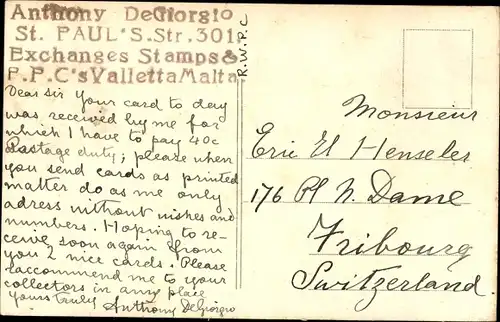 Anthony DeGiorgio
St. PAUL'S.Str.301
Exchanges Stamps&
P.P.C's Valletta Malta
R.W.P.C
Dear sir your card to day
was received by me for
which I have to pay 40c
Postage duty; please when
you send cards as printed
matter do as me only
adress without wishes and
numbers. Hoping to re-
ceive soon again from
you 2 nice cards. Please
raccommend me to your
collectors in any place
yours truly Anthony DeGiorgio
Monsieur
Eric El Henseler
176 Pl N. Dame
Fribourg
Switzerland.